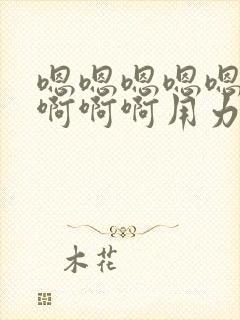 嗯嗯嗯嗯嗯
啊啊啊用力
木花